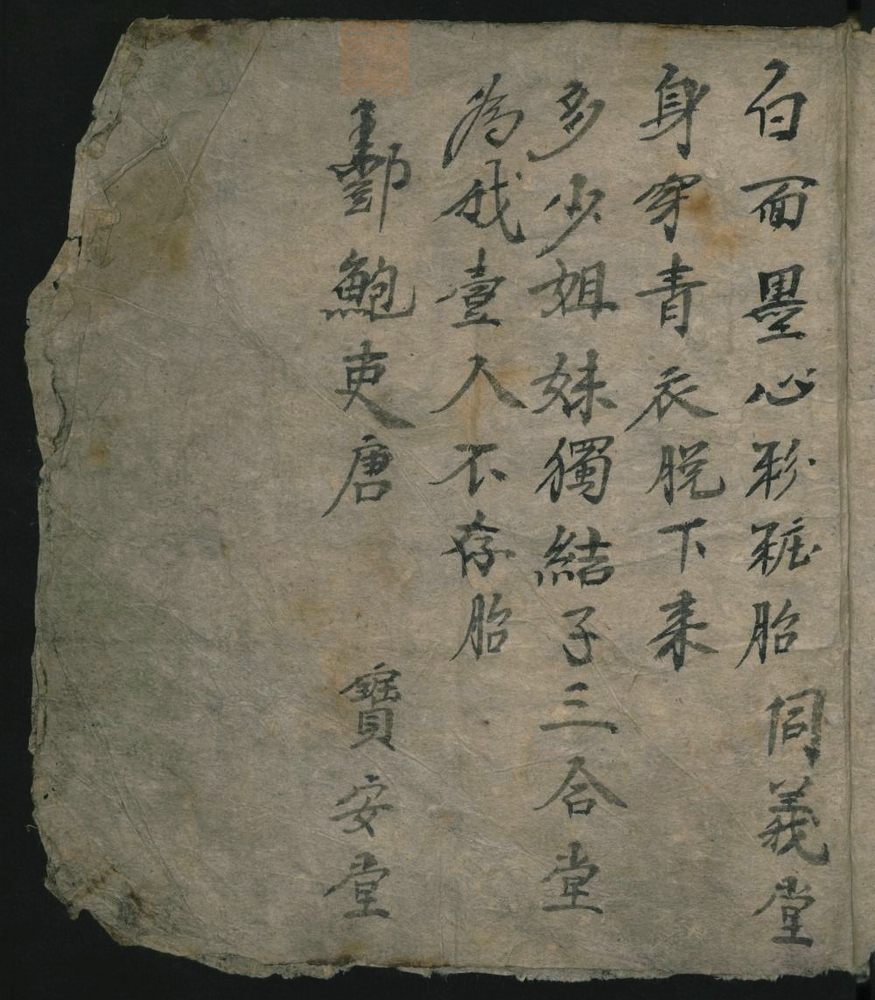 白面墨心彩粧胎 同義堂
身穿青衣脱下来
多少姐妹獨結子三合堂
為我壹人不存胎
酆鮑史唐 寳安堂